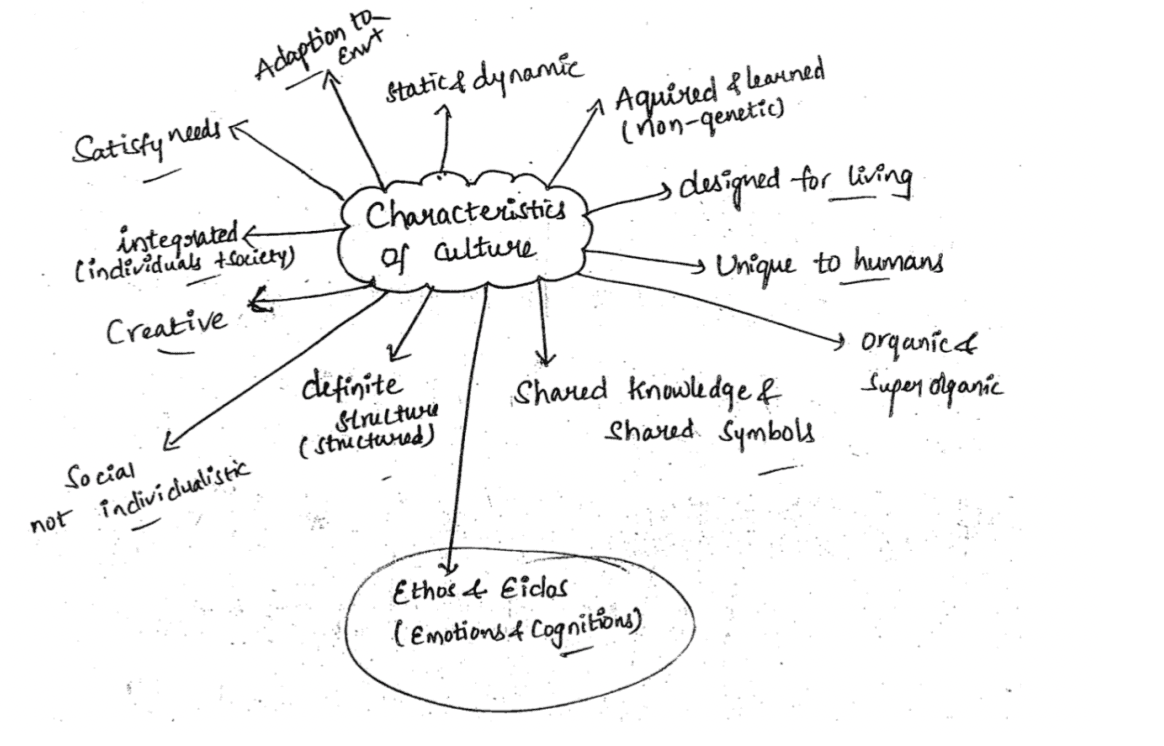 Adaption to
Envt
Static & dynamic
Aquired & learned
(non-genetic)
Satisfy needs
designed for living
Characteristics
of culture
integrated
(individuals + society)
Unique to humans
Creative
Organic &
Super olganic
definite
structure
(structured)
Shared Knowledge &
Shared Symbols
Social
not individualistic
Ethos & Eidos
(Emotions & Cognitions)